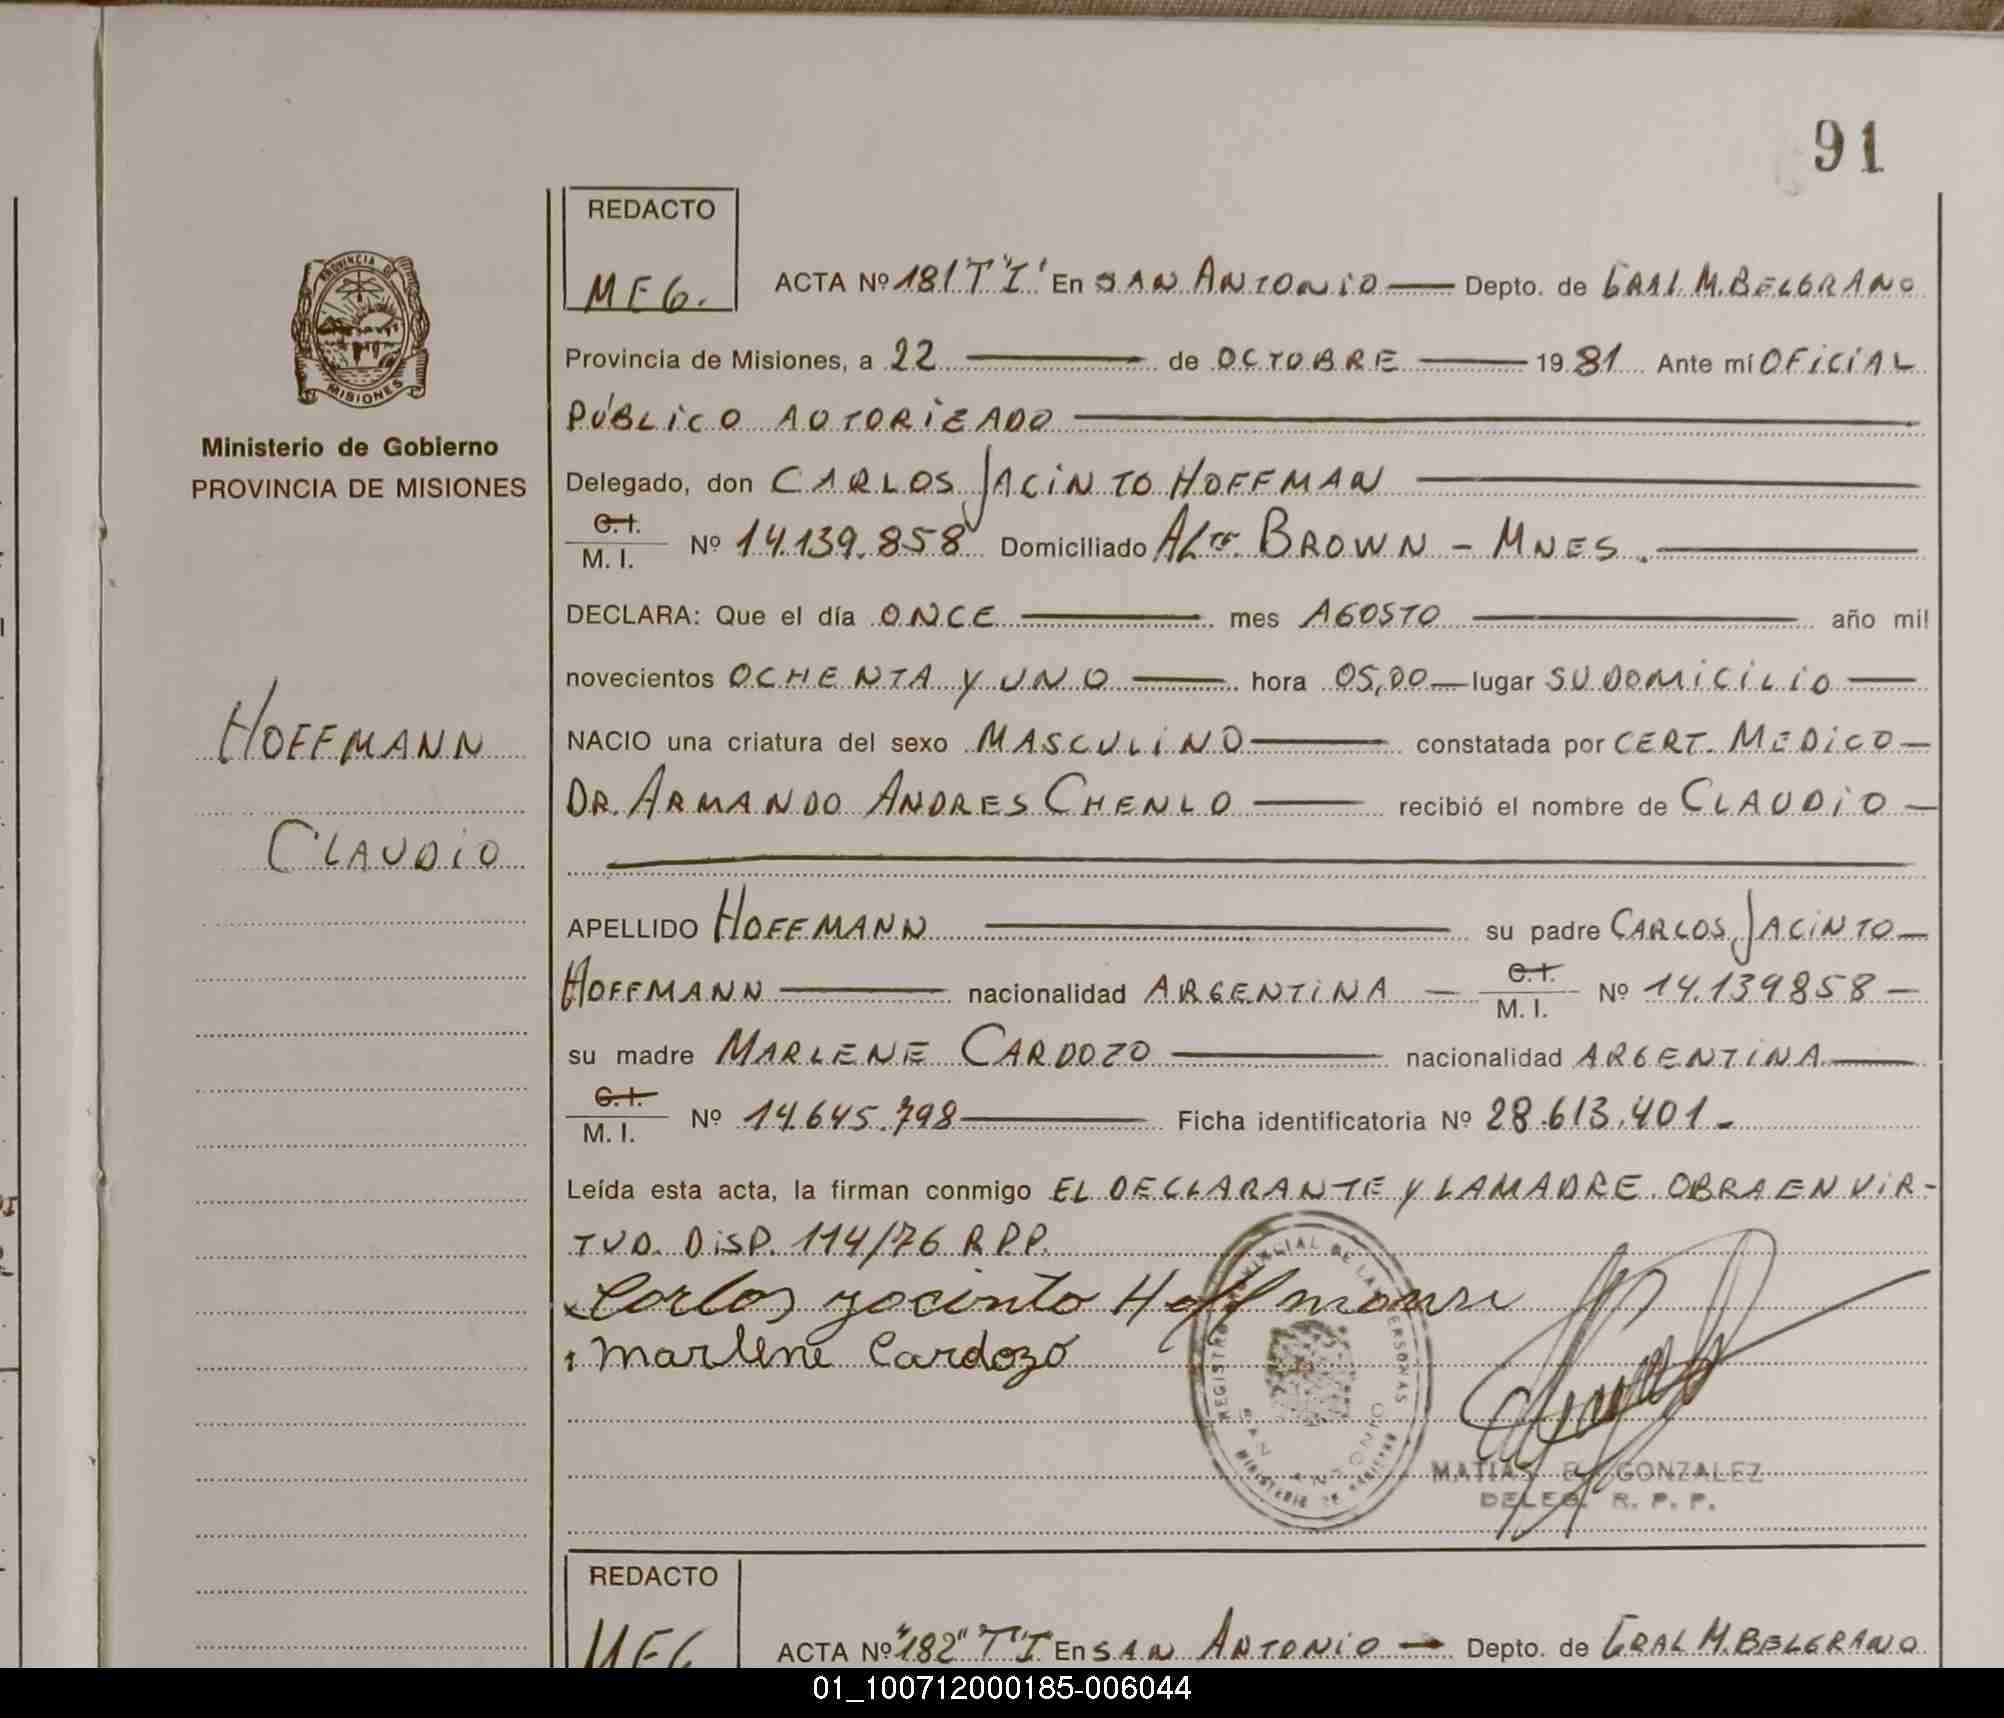 91
REDACTO
MEG.
ACTA Nº 181 "T" "I" En SAN ANTONIO — Depto. de GRAL M. BELGRANO
Provincia de Misiones, a 22 — de OCTOBRE — 1981 Ante mí OFICIAL
PÚBLICO AUTORIZADO
Delegado, don CARLOS JACINTO HOFFMAN
C.I.
M. I. Nº 14.139.858 Domiciliado ALTE. BROWN - MNES.
DECLARA: Que el día ONCE — mes AGOSTO — año mil
novecientos OCHENTA Y UNO — hora 05,00 — lugar SU DOMICILIO —
NACIO una criatura del sexo MASCULINO — constatada por CERT. MEDICO —
DR. ARMANDO ANDRES CHENLO — recibió el nombre de CLAUDIO —
APELLIDO HOFFMANN — su padre CARLOS JACINTO —
HOFFMANN — nacionalidad ARGENTINA — C.I. M. I. Nº 14.139858 —
su madre MARLENE CARDOZO — nacionalidad ARGENTINA —
C.I.
M. I. Nº 14.645.798 — Ficha identificatoria Nº 28.613.401.-
Leída esta acta, la firman conmigo EL DECLARANTE Y LA MADRE OBRA EN VIR-
TUD. DISP. 114/76 R.P.P.
Carlos Jacinto Hoffmann
Marlene Cardozo
REGISTRO PROVINCIAL DE LAS PERSONAS
SAN ANTONIO
MINISTERIO DE
MATIAS E. GONZALEZ
DELEG. R. P. P.
PROVINCIA DE
MISIONES
Ministerio de Gobierno
PROVINCIA DE MISIONES
HOFFMANN
CLAUDIO
REDACTO
MEG
ACTA Nº "182" "T" "I" En SAN ANTONIO — Depto. de GRAL M. BELGRANO
01_100712000185-006044